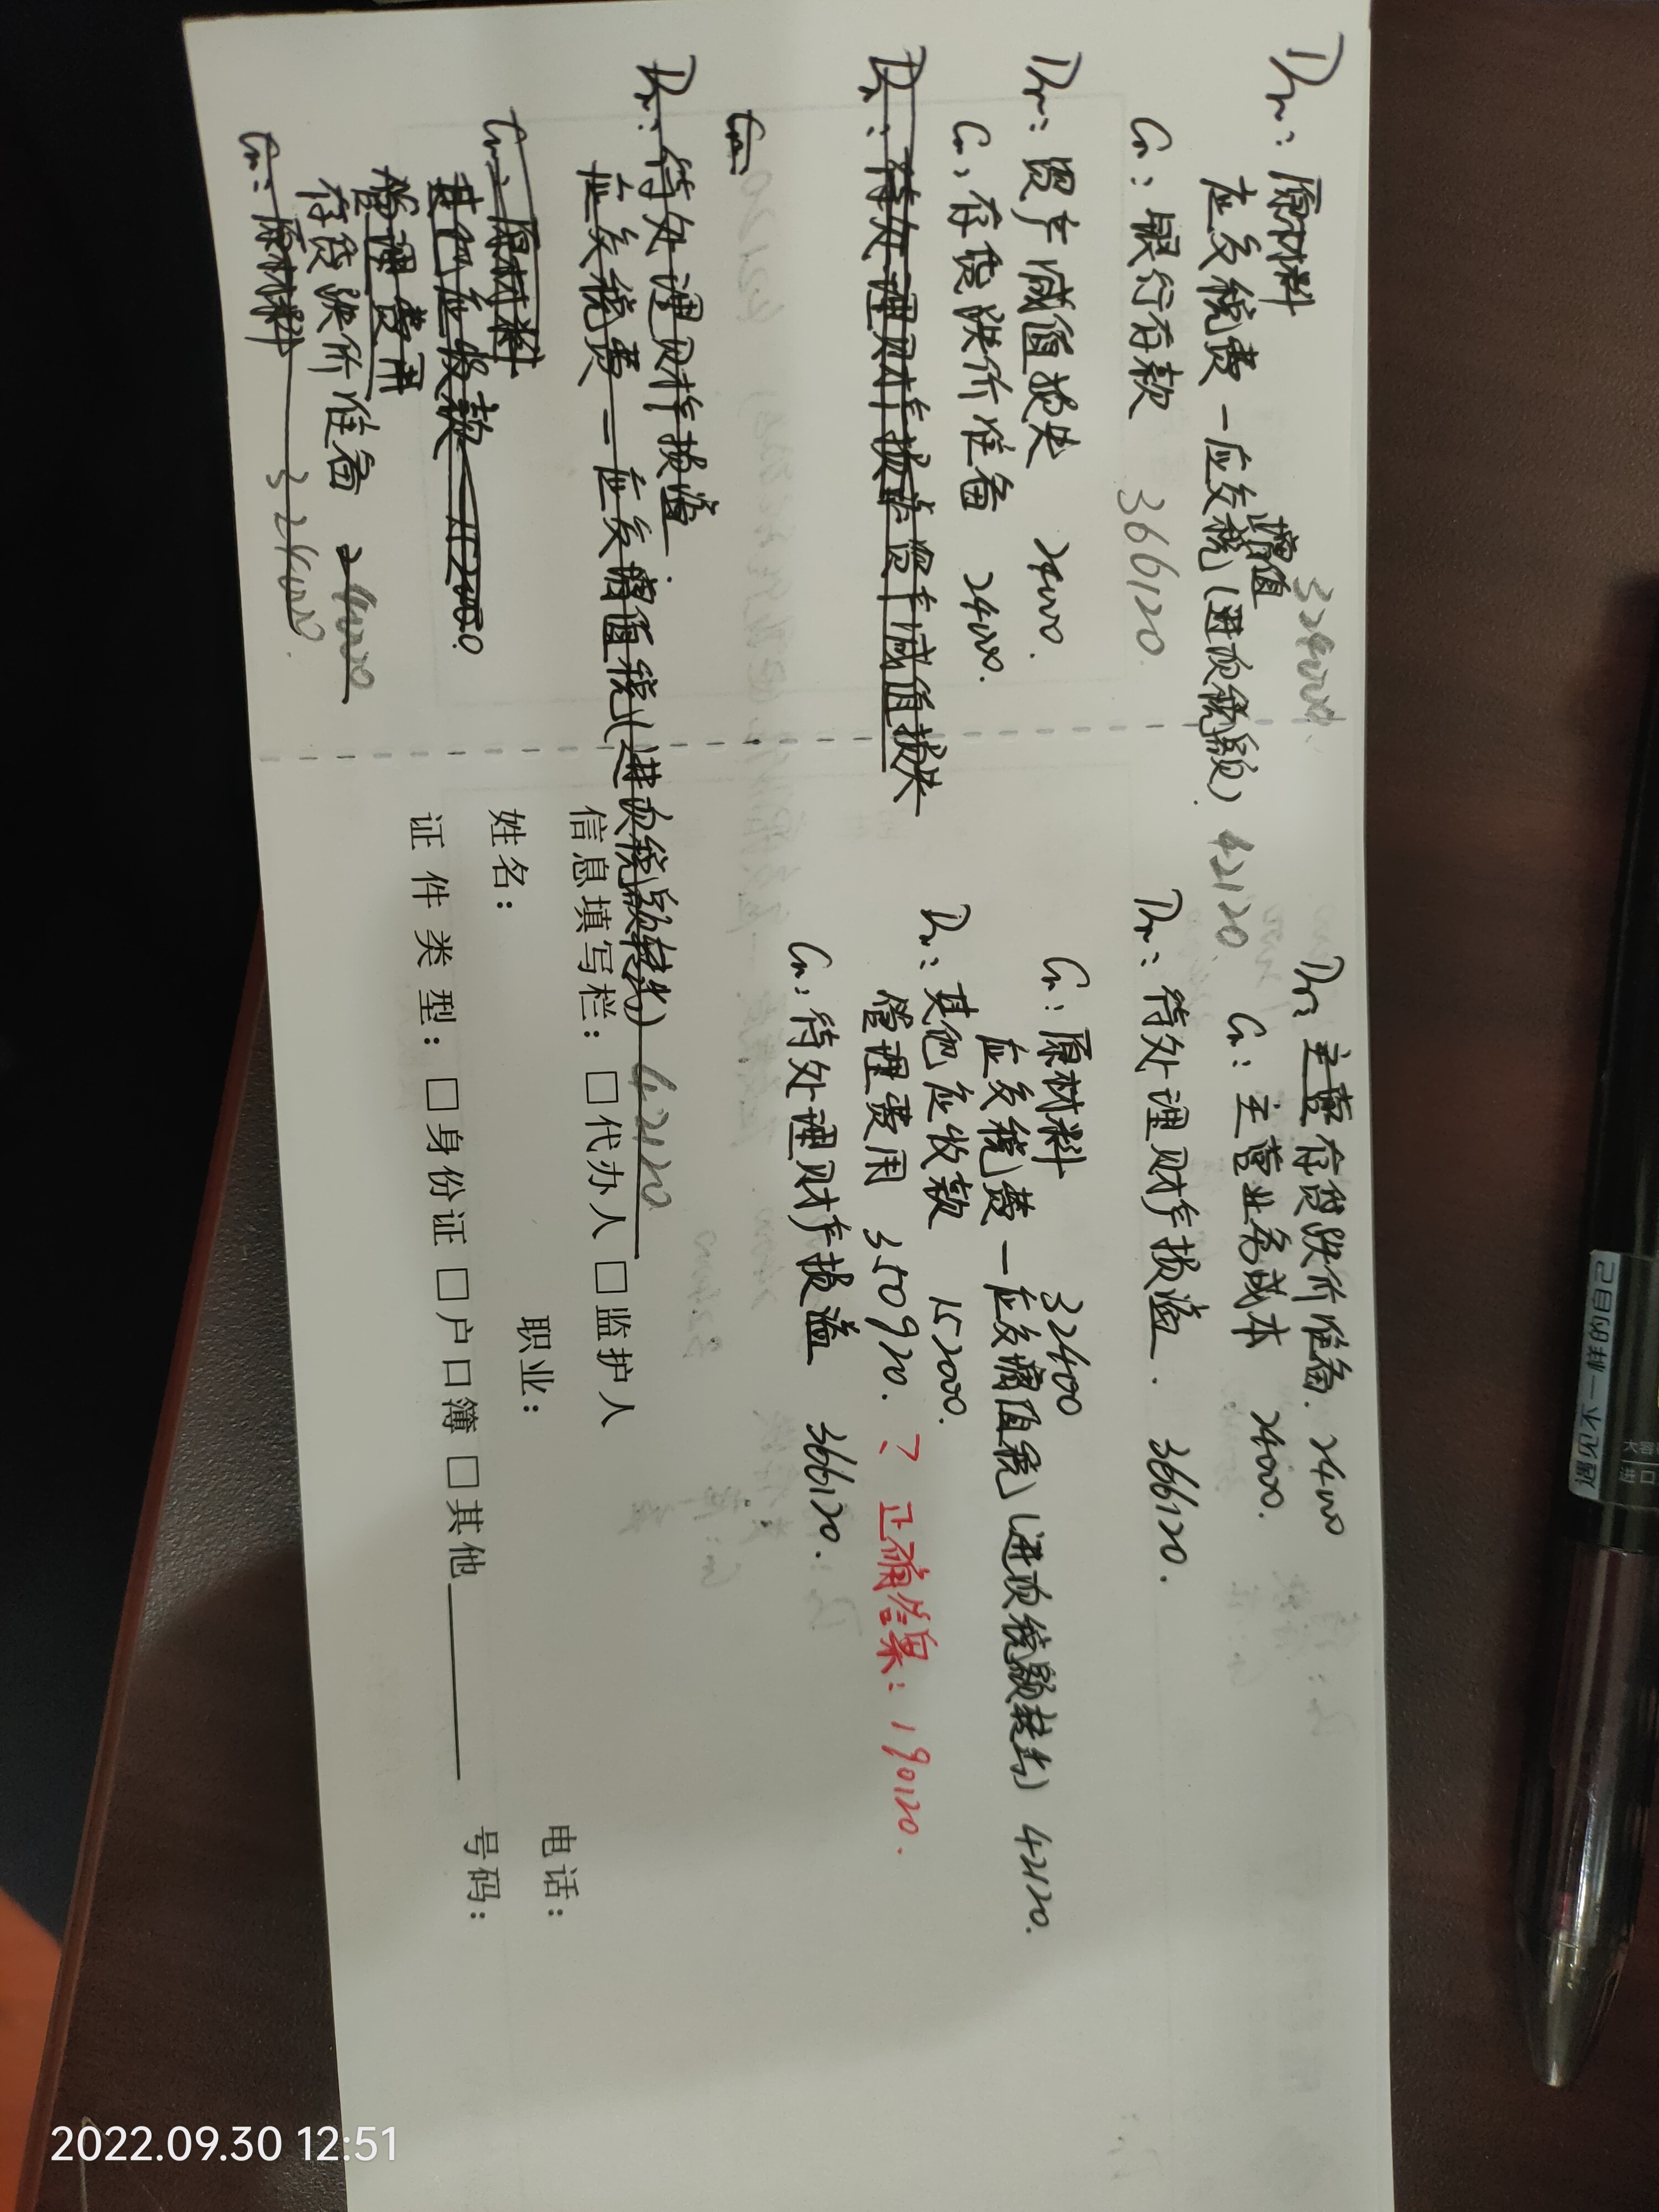 Dr：原材料 324000
应交税费－应交增值税（进项税额） 42120
Cr：银行存款 366120.
Dr：资产减值损失 2400.
Cr：存货跌价准备 2400.
Dr：待处理财产损益资产减值损失
Cr：
Dr：待处理财产损益
应交税费－应交增值税（进项税额转出） 42120
Cr：原材料
其他应收款 152000
管理费用
存货跌价准备 2400
Cr：原材料 324000.
Dr：主营存货跌价准备. 2400
Cr：主营业务成本 2400.
Dr：待处理财产损益. 366120.
Cr：原材料 32400
应交税费－应交增值税（进项税额转出） 42120.
Dr：其他应收款 152000.
管理费用 350920. ？ 正确答案：190120.
Cr：待处理财产损益 366120.
信息填写栏：□代办人 □监护人
姓名： 职业： 电话：
证件类型：□身份证 □户口簿 □其他 号码：
2022.09.30 12:51